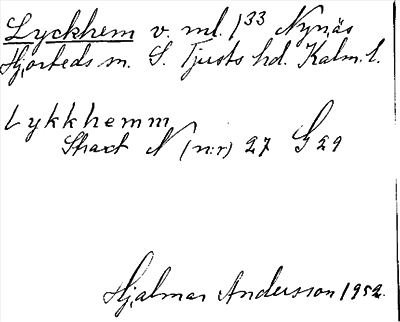 Lyckhem v. ml. 1³³ Nynäs
Hjorteds sn. S. Tjusts hd. Kalm. l.
Lykkhemm
Skaxt N (n:r) 27 G 29
Hjalmar Andersson 1952.